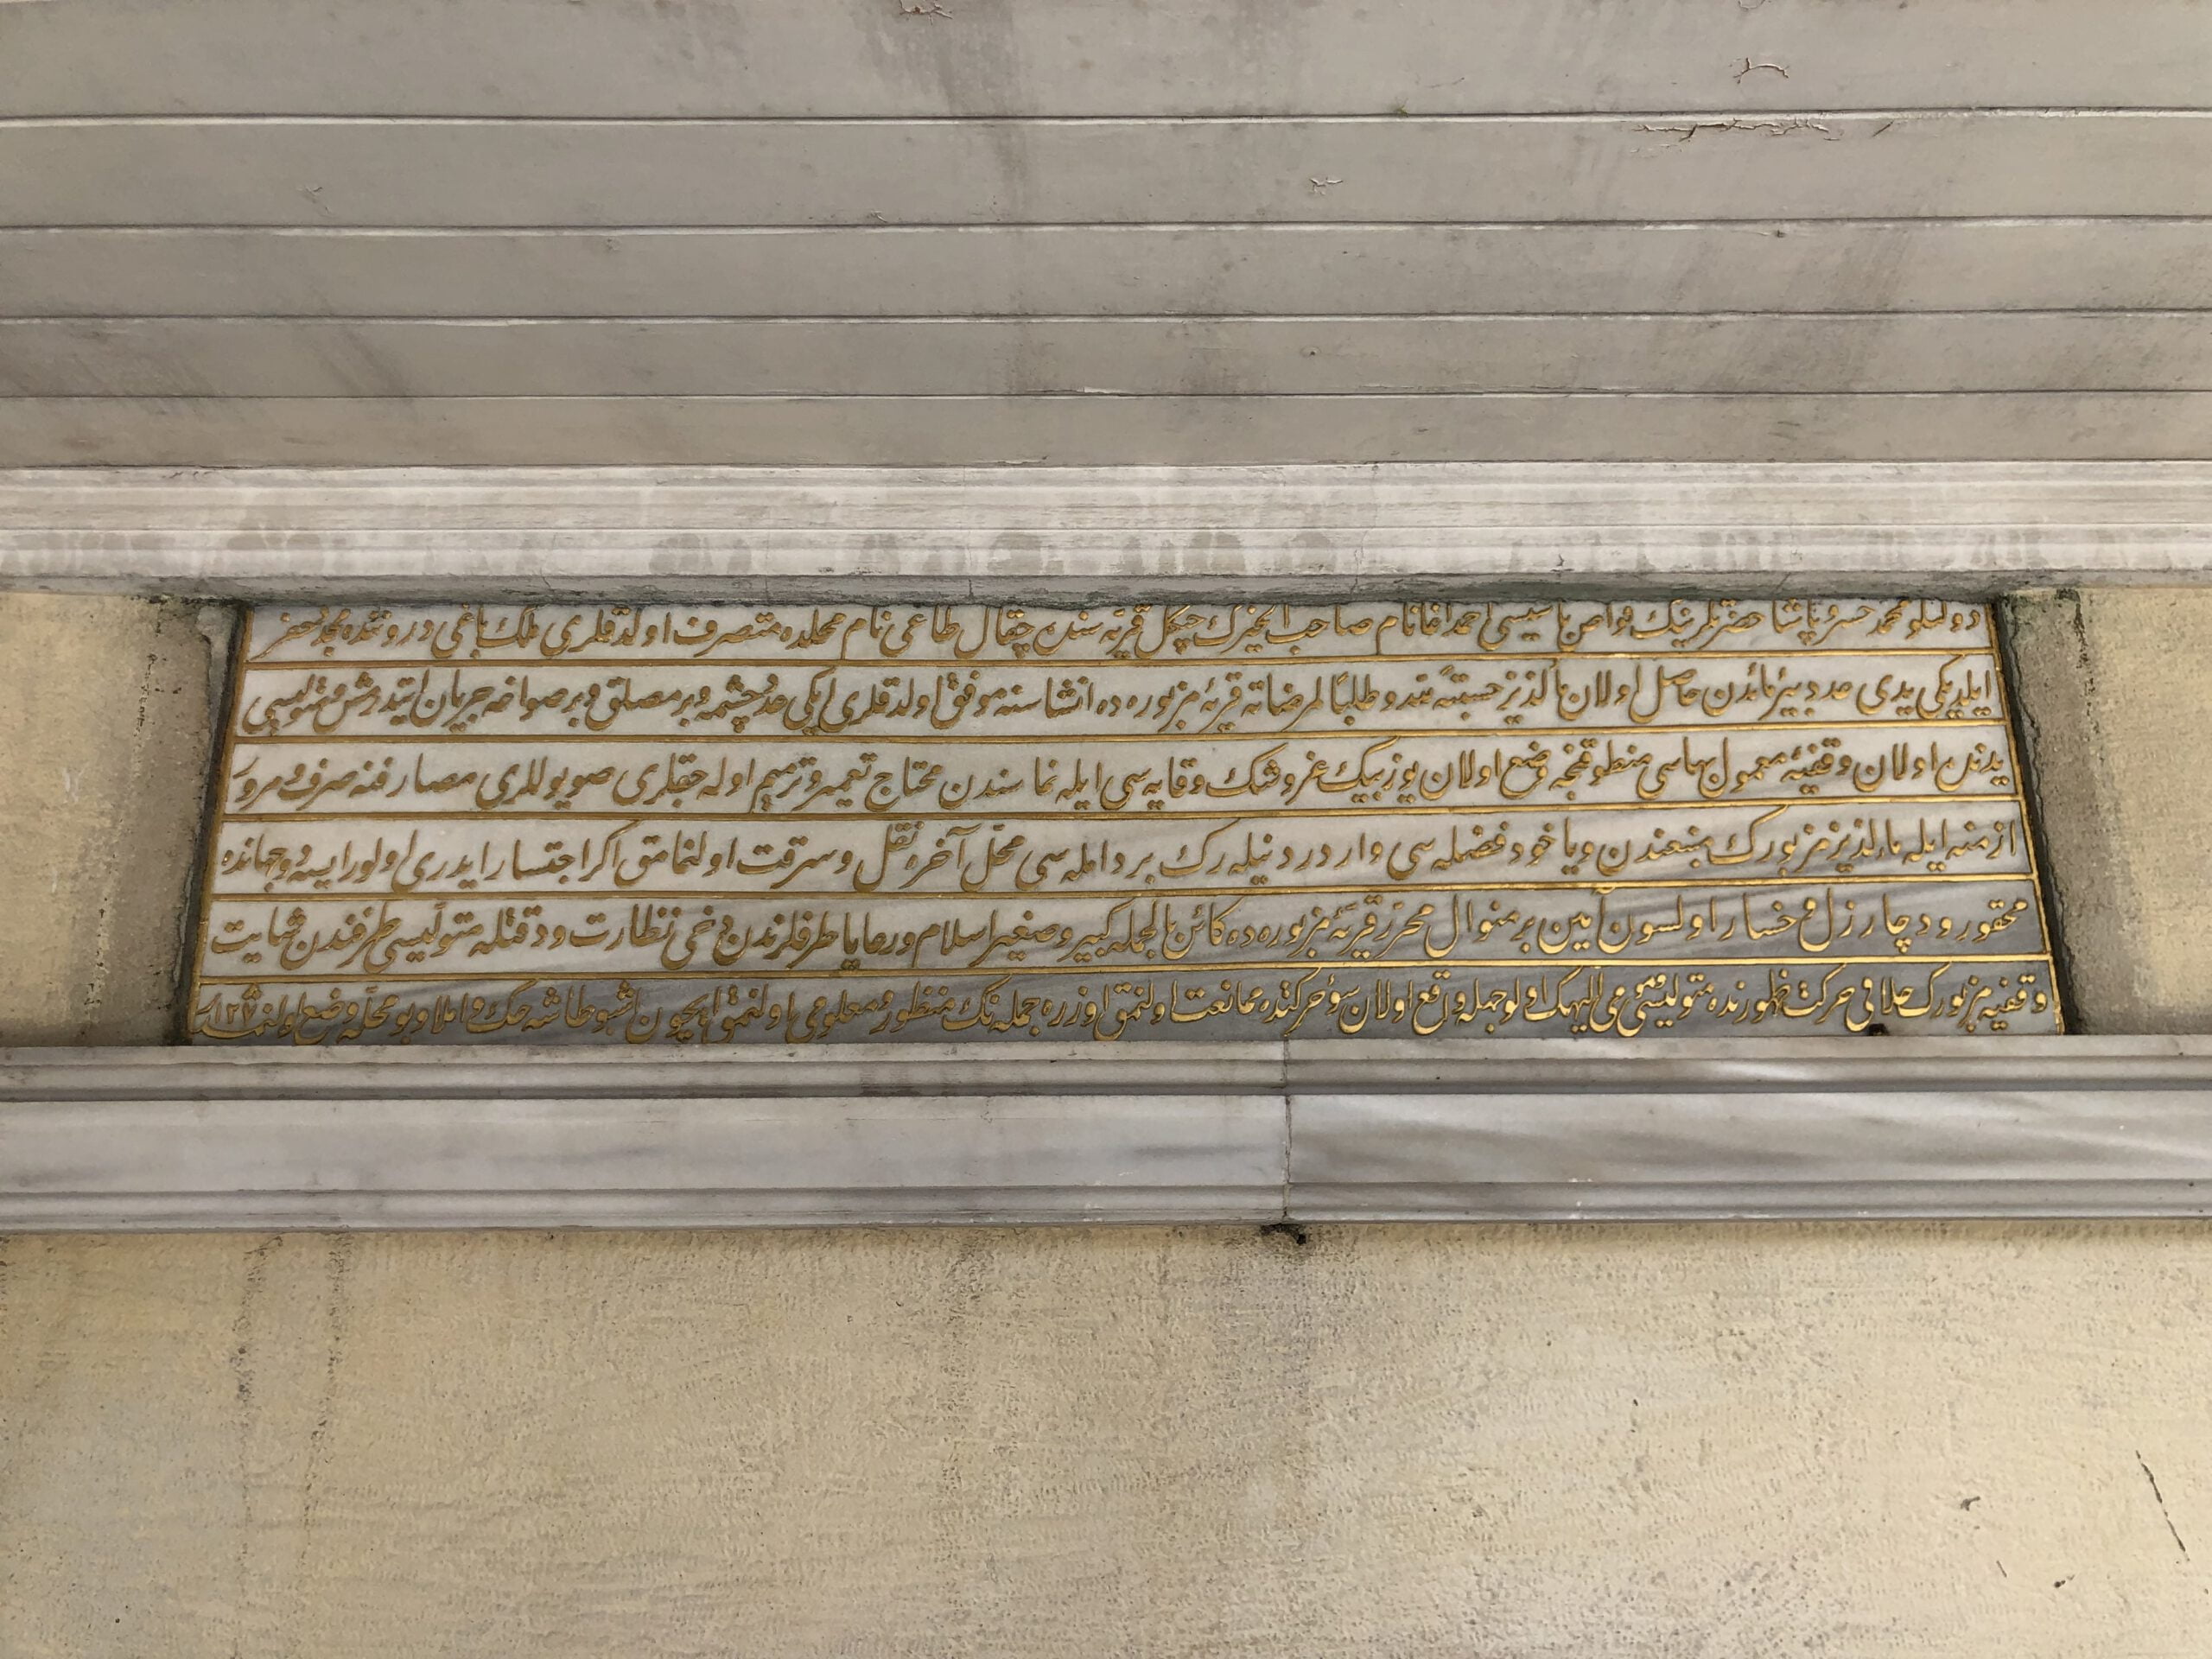 دولتلو محمد خسرو پاشا حضرتلرينك خواص باسيسى احمد اغا نام صاحب الخيرك چنكل قريه سنده چقال طاغى نام محلده متصرف اولدقلرى ملك باغى دروننده مجددا حفر
ايلديكى يدى عدد بيئر مائدن حاصل اولان ماء لذيز حسبتة لله و طلبا لمرضاته قريۀ مزبوره ده انشاسنه موفق اولدقلرى ايكى عدد چشمه و بر مصلق و بر صواغه جريان ايتدرمش متوليسى
يدنده اولان وقفيۀ معمول بهاسى منطوقنجه وضع اولان يوز بيك غروشك وقايه سى ايله نماسندن محتاج تعمير و ترميم اوله جقلرى صويوللرى مصارفنه صرف و مرور
ازمنه ايله ماء لذيز مزبورك منبعندن ويا خود فضله سى واردر دنيله رك بر دامله سى محل آخره نقل و سرقت اولنمامق اكر اجتسار ايدرى اولور ايسه دو جهانده
محقور و دچار رزل و خسار اولسون آمين بر منوال محرر قريۀ مزبوره ده كائن بالجمله كبير و صغير اسلام و رعايا طرفلرندن دخى نظارت و دقتله متوليسى طرفندن حمايت
وقفيه مزبورك خلافى حركت ظهورنده متوليسى مومى اليهك اولوجهله واقع اولان سوء حركتده ممانعت اولنمق اوزره جمله نك منظور و معلومى اولنمق ايچون اشبو طاشه حك و املا و بو محله وضع اولنمشدر